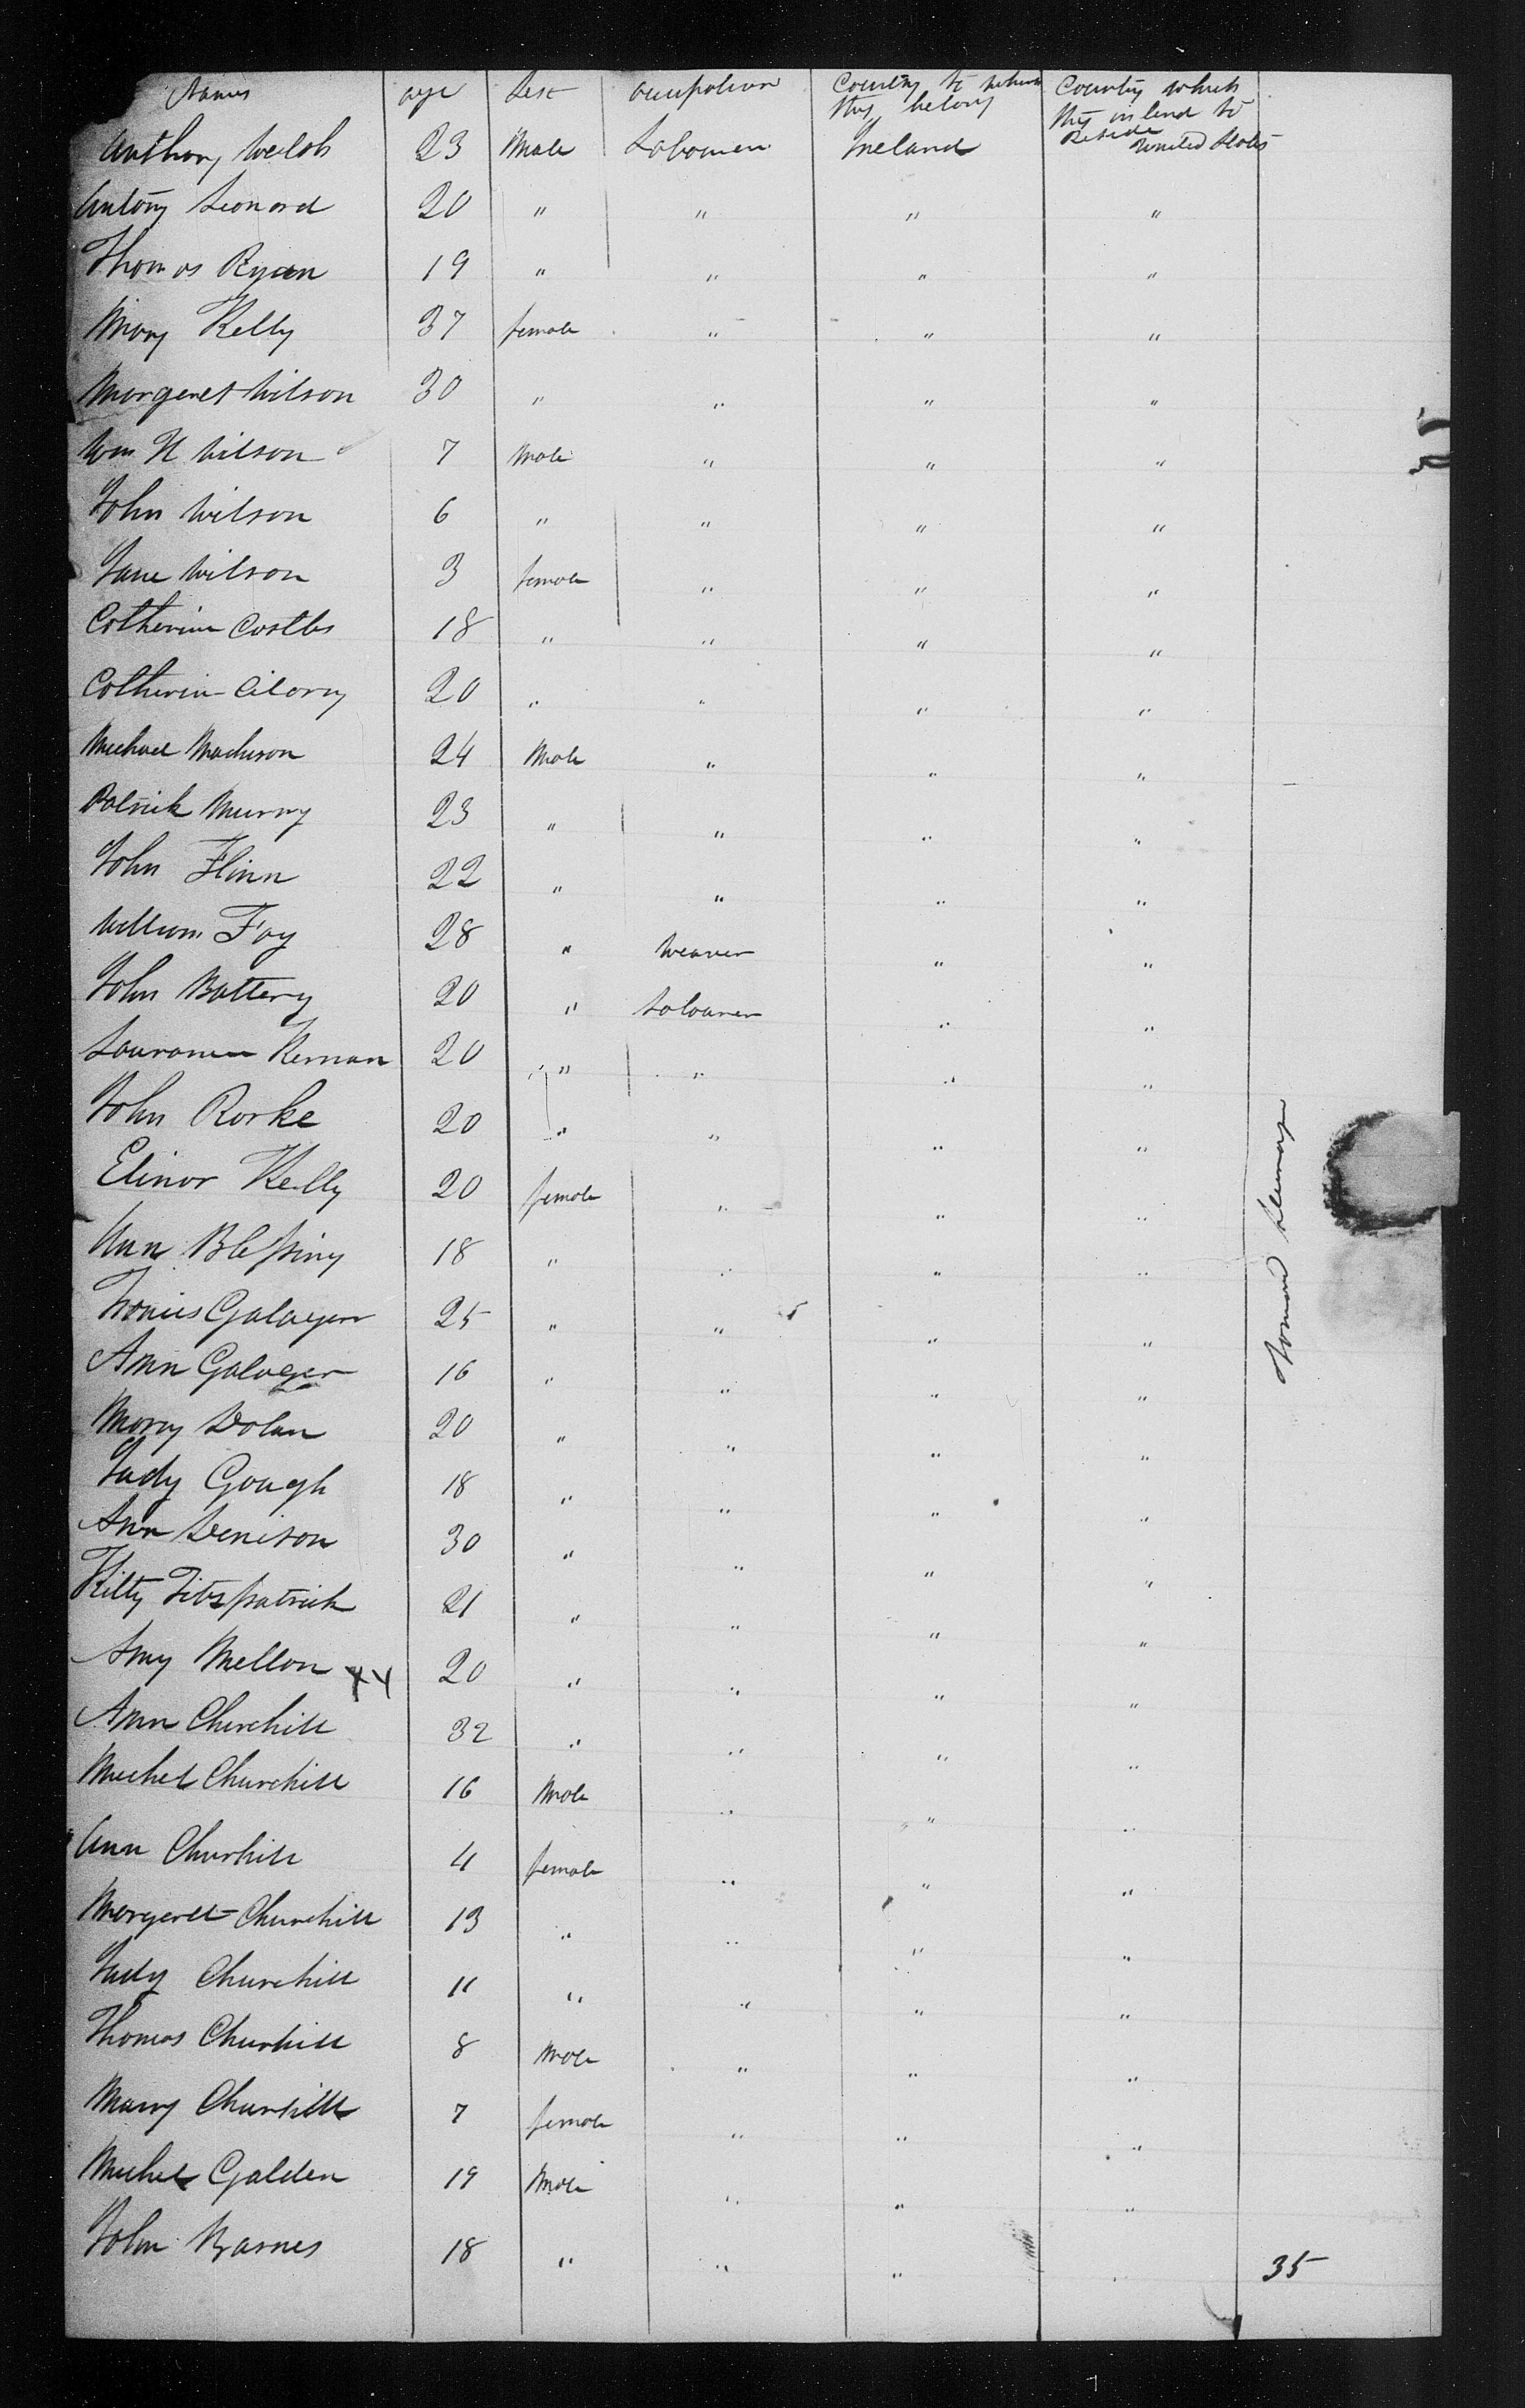 Names age Sex occupation Country to which they belong Country which they intend to Reside
Anthony Welsh 23 Male Labourer Ireland United States
Antony Leonord 20 " " " "
Thomas Ryan 19 " " " "
Mary Kelly 37 female " " "
Margeret Wilson 30 " " " "
Wm H Wilson 7 Male " " "
John Wilson 6 " " " "
Jane Wilson 3 female " " "
Catherine Costlo 18 " " " "
Catherine 20 " " " "
Michael Madison 24 Male " " "
Patrick Murry 23 " " " "
John Flinn 22 " " " "
William Foy 28 " Weaver " "
John Battery 20 " Labourer " "
Kernan 20 " " " "
John Rorke 20 " " " "
Elinor Kelly 20 female " " "
Ann Blessing 18 " " " "
Galager 25 " " " "
Ann Galager 16 " " " "
Mary Dolan 20 " " " "
Judy Gough 18 " " " "
Ann Denison 30 " " " "
Kitty Fitzpatrick 21 " " " "
Amy Mellon 20 " " " "
Ann Churchill 32 " " " "
Michel Churchill 16 Male " " "
Ann Churhill 4 female " " "
Margerett Churchill 13 " " " "
Judy Churchill 11 " " " "
Thomas Churhill 8 Male " " "
Mary Churhill 7 female " " "
Michel Galden 19 Male " " "
John Barnes 18 " " " "
35